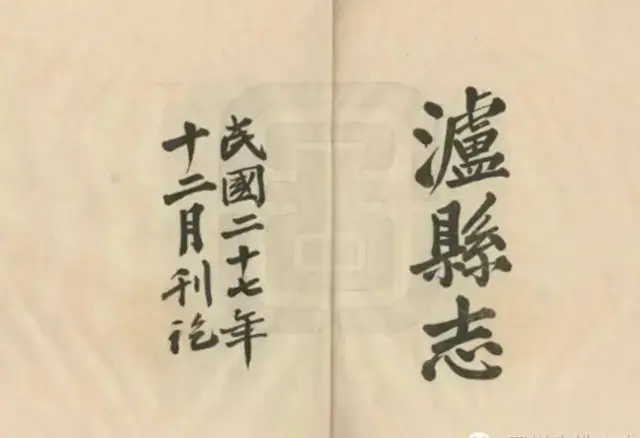 瀘縣志
民國二十七年
十二月刊訖